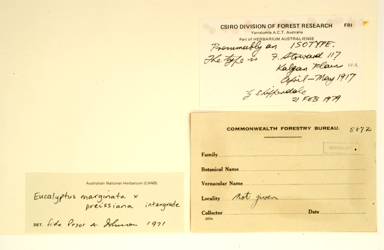 CSIRO DIVISION OF FOREST RESEARCH FRI
Yarralumla A.C.T. Australia
Part of HERBARIUM AUSTRALIENSE
Presumably an ISOTYPE.
The type is F. Stoward 117
Kalgan Plains W.A.
April-May 1917
21 FEB 1979
COMMONWEALTH FORESTRY BUREAU. 5072
Family
Botanical Name
Vernacular Name
Locality Not given
Collector Date
Australian National Herbarium (CANB)
Eucalyptus marginata x
preissiana intergrade
DET. fide Pryor & Johnson 1971